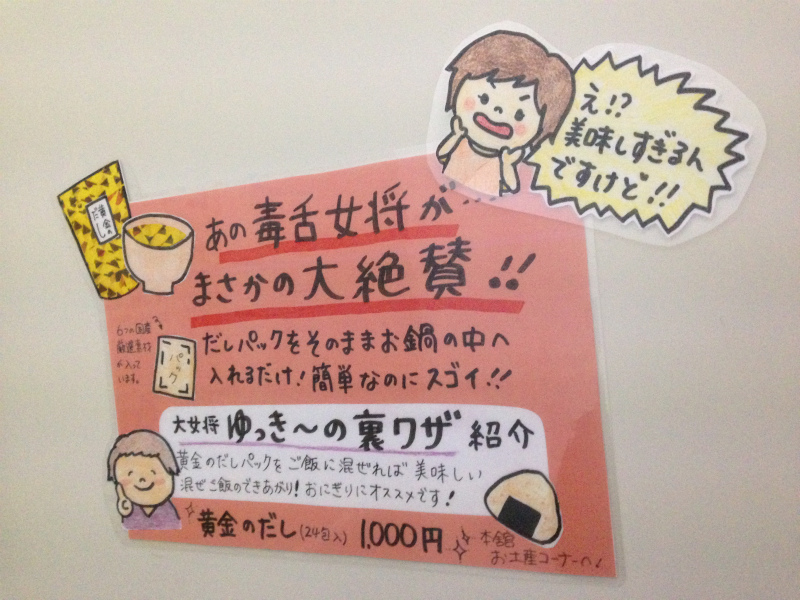 え!?
美味しすぎるん
ですけど!!
黄金の
だし
あの毒舌女将が…
まさかの大絶賛!!
6つの国産
厳選素材
が入って
います。
パック
だしパックをそのままお鍋の中へ
入れるだけ!簡単なのにスゴイ!!
大女将 ゆっき〜の裏ワザ 紹介
黄金のだしパックをご飯に混ぜれば美味しい
混ぜご飯のできあがり!おにぎりにオススメです!
黄金のだし(24包入) 1,000円
本館
お土産コーナーへ!